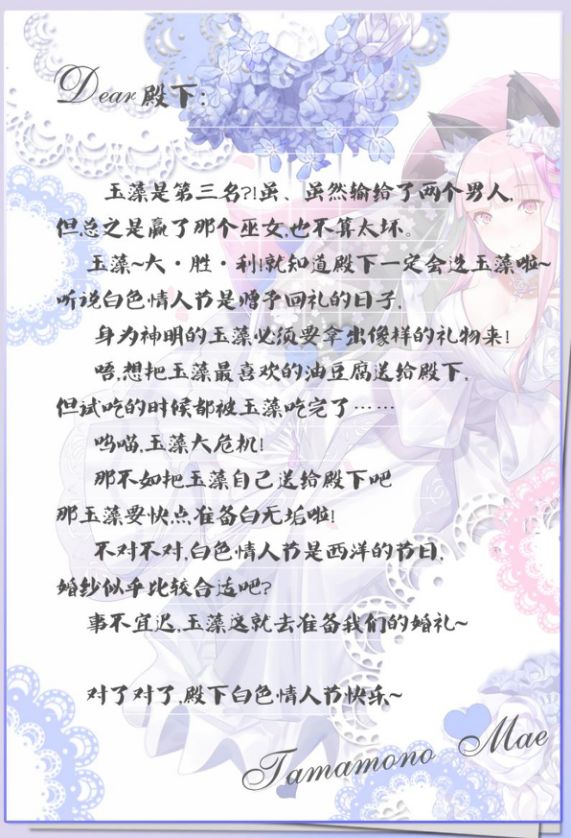 Dear 殿下:
玉藻是第三名?!虽、虽然输给了两个男人,
但总之是赢了那个巫女,也不算太坏。
玉藻~大·胜·利!就知道殿下一定会选玉藻啦~
听说白色情人节是赠予回礼的日子,
身为神明的玉藻必须要拿出像样的礼物来!
唔,想把玉藻最喜欢的油豆腐送给殿下,
但试吃的时候都被玉藻吃完了……
呜喵,玉藻大危机!
那不如把玉藻自己送给殿下吧
那玉藻要快点准备白无垢啦!
不对不对,白色情人节是西洋的节日,
婚纱似乎比较合适吧?
事不宜迟,玉藻这就去准备我们的婚礼~
对了对了,殿下白色情人节快乐~
Tamamono Mae